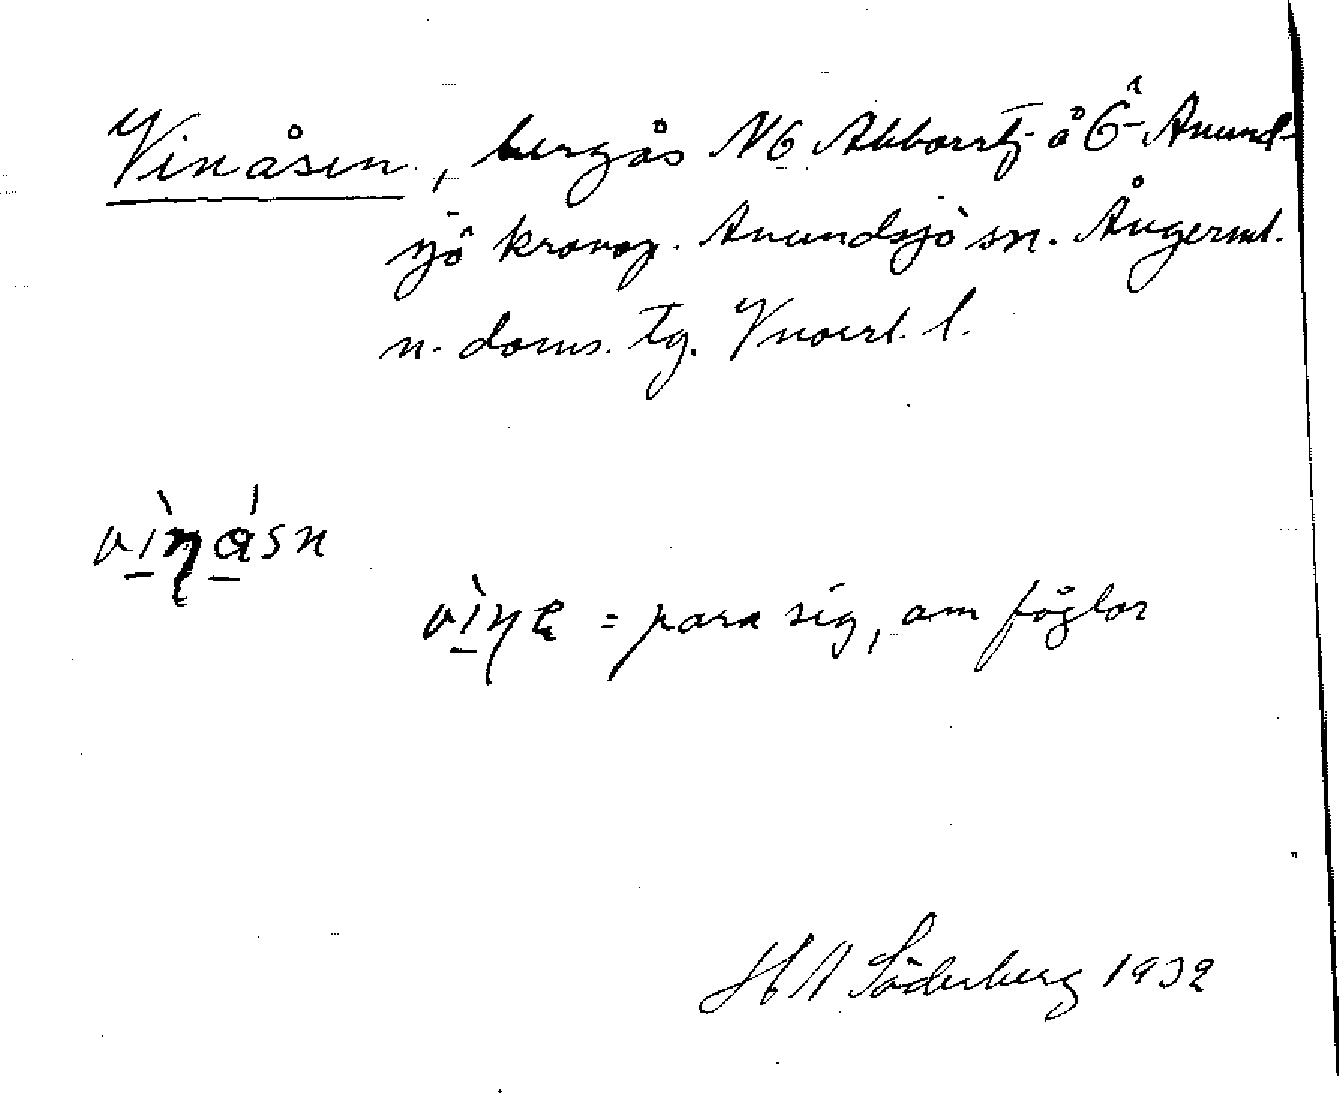 Vinåsen, bergås NÖ Abborrtj å Ö Anund-
sjö kronop. Anundsjö sn. Ångerml.
n. doms. tg. Vnorrl. l.
vìŋásn
vìŋe = para sig, om fåglar
H A Söderberg 1932